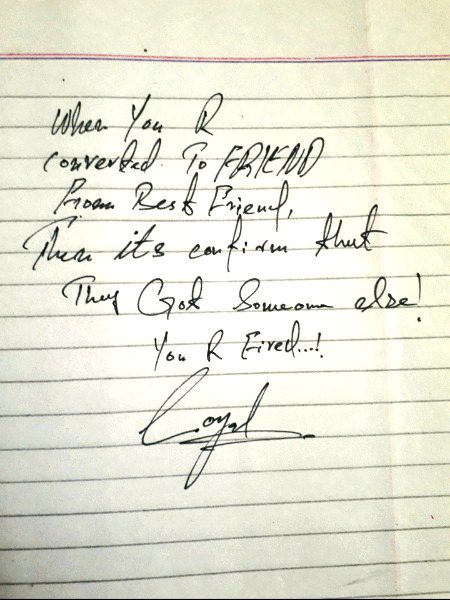 When You R
converted To FRIEND
From Best Friend,
Then its confirm that
They Got Someone else!
You R Fired...!